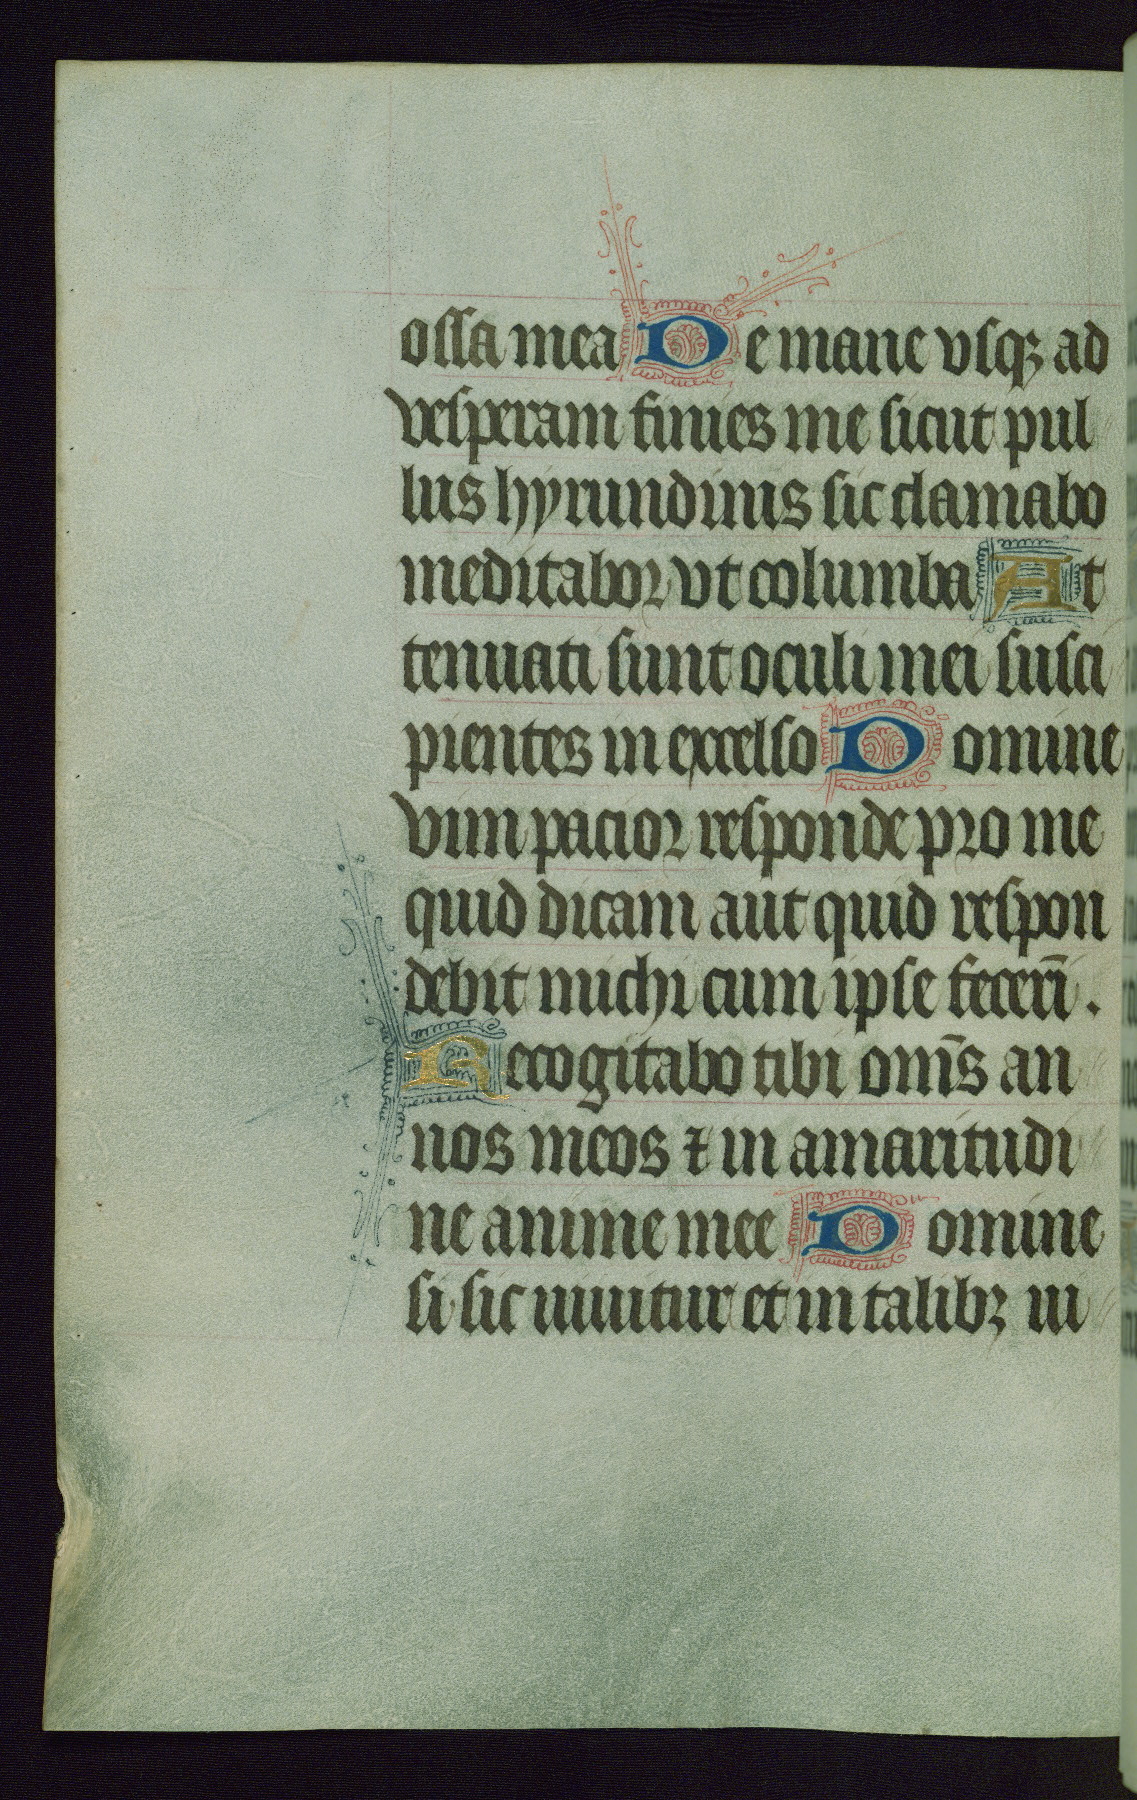 ossa mea De mane vsqꝫ ad
vesperam finies me sicut pul
lus hyrundinis sic clamabo
meditabor vt columba At
tenuati sunt oculi mei susci
pientes in excelso Domine
vim pacior responde pro me
quid dicam aut quid respon
debit michi cum ipse fecerī.
Recogitabo tibi om̄s an
nos meos ⁊ in amaritudi
ne anime mee Domine
si sic uiuitur et in talibꝫ ui